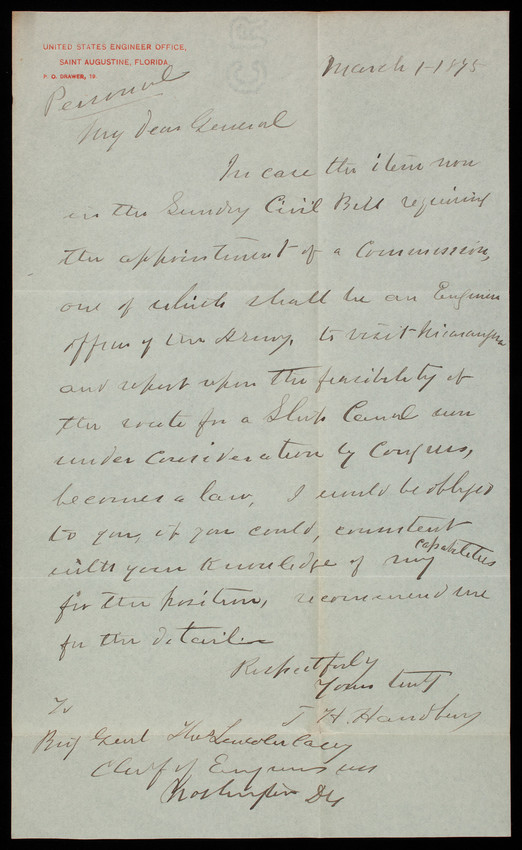 UNITED STATES ENGINEER OFFICE,
SAINT AUGUSTINE, FLORIDA
P. O. DRAWER, 19.
March 1-1895
Personal
My dear General
In case the item now
in the Sundry Civil Bill requiring
the appointment of a Commission,
one of which shall be an Engineer
officer of the Army, to visit Nicaragua
and report upon the feasibility of
the route for a Ship Canal now
under consideration by Congress,
becomes a law, I would be obliged
to you, if you could, consistent
with your knowledge of my capabilities
for the position, recommend me
for the detail.
Respectfully
Yours truly
T. H. Handbury
To
Brig Genl Thos Lincoln Casey
Chief of Engineers
Washington DC